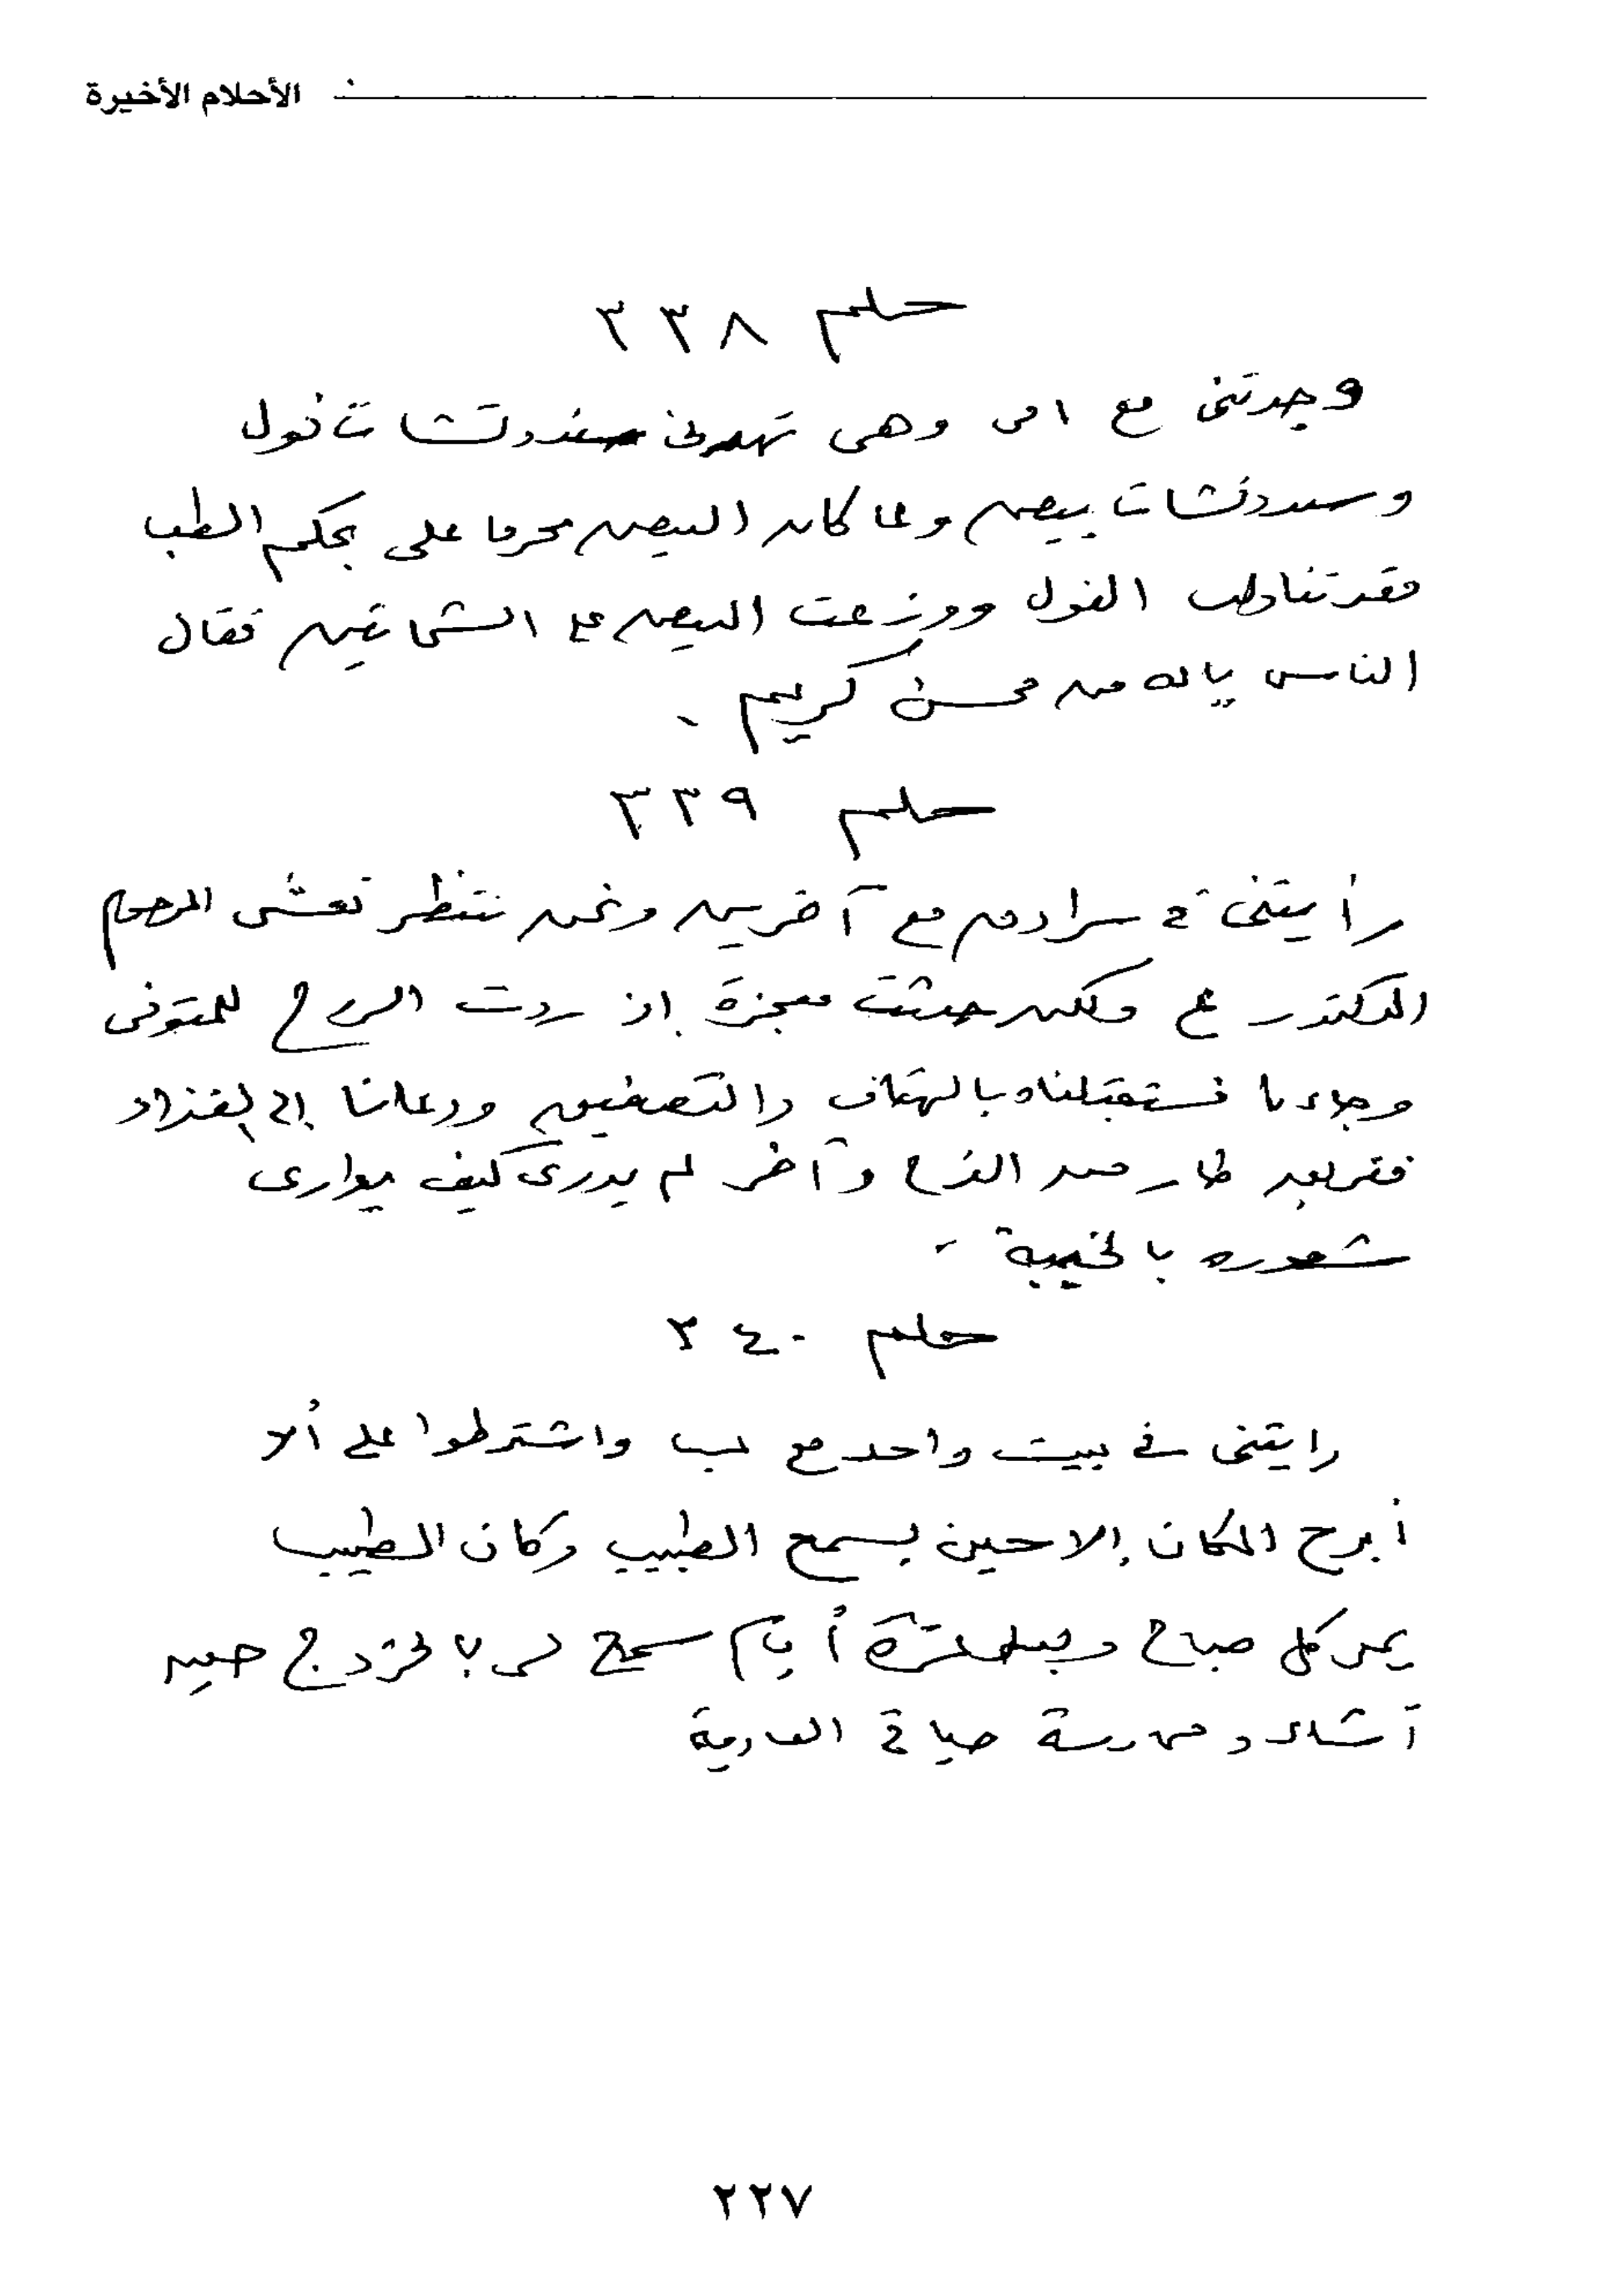 الأحلام الأخيرة
حلم ٣٣٨
وجدتنى مع امى وهى تهدينى سندوتشات فول
وسندوتشات بيض ولما كان البيض محرما على بحكم الطب
فقد تناولت الفول ووزعت البيض على الشحاتين فقال
الناس ياله من محسن كريم .
حلم ٣٣٩
رأيتنى فى سرادق مع آخرين ونحن ننتظر نعش المرحوم
الدكتور ع ولكن حدثت معجزة إذ ردت الروح للمتوفى
وجاءنا فستقبلناه بالهتاف والتصفيق ودعانا إلى الغذاء
ففريق طار من الفرح وآخر لم يدرى كيف يوارى
شعوره بالخيبة .
حلم ٣٤٠
رايتنى فى بيت واحد مع واشترطوا على ألا
أبرح المكان إلا حين يسمح الطبيب وكان الطبيب
يمر كل صباح وبعد عشرة أيام سمح لى بالخروج حين
أشاء و حياتى العادية
٢٢٧